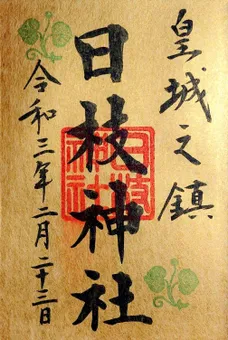 皇城之鎮
日枝神社
令和三年二月二十三日
日枝
神社